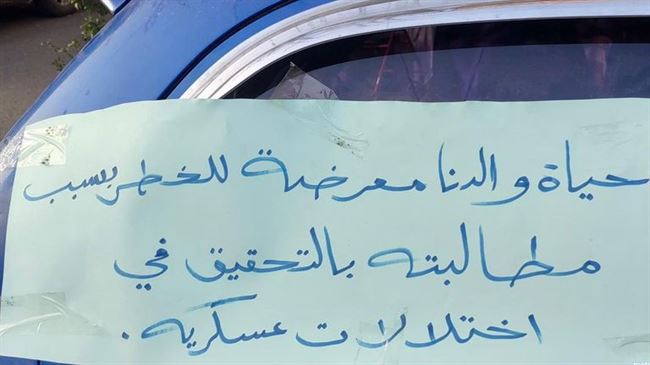 حياة والدنا معرضة للخطر بسبب
مطالبته بالتحقيق في
اختلالات عسكرية.